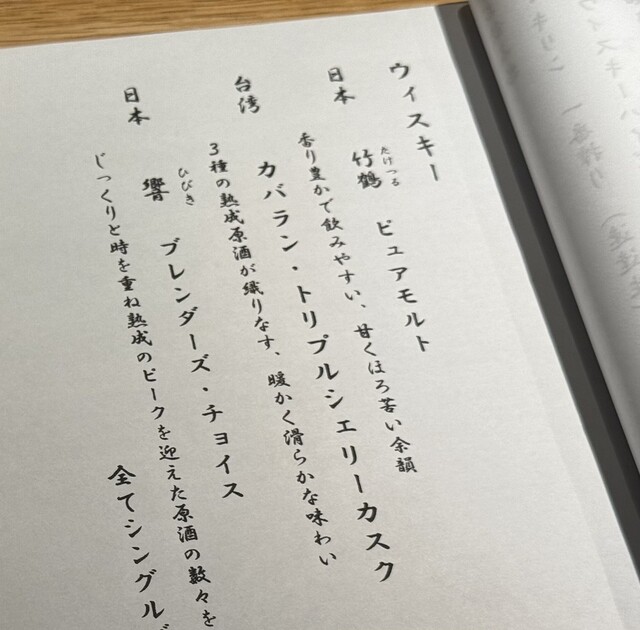 ウィスキー
日本 竹鶴 ピュアモルト
たけつる
香り豊かで飲みやすい、甘くほろ苦い余韻
台湾 カバラン・トリプルシェリーカスク
3種の熟成原酒が織りなす、暖かく滑らかな味わい
日本 響 ブレンダーズ・チョイス
ひびき
じっくりと時を重ね熟成のピークを迎えた原酒の数々を
全てシングル